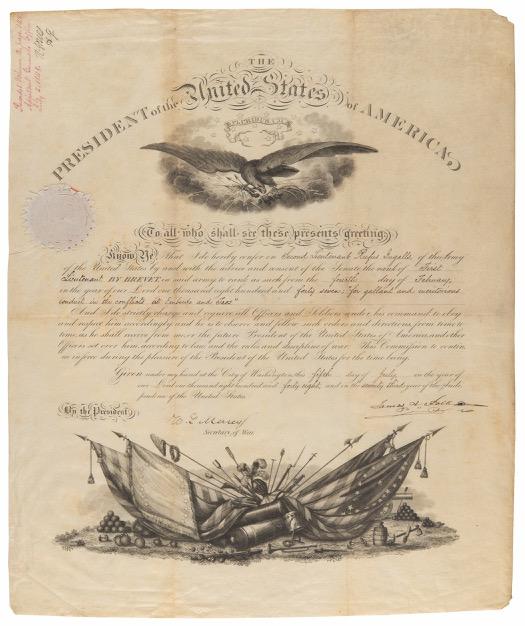 THE
PRESIDENT of the United States of AMERICA,
E PLURIBUS UNUM
To all who shall see these presents greeting:
Know Ye That I do hereby confer on Second Lieutenant Rufus Ingalls, of the Army
of the United States by and with the advice and consent of the Senate the rank of First
Lieutenant BY BREVET in said army to rank as such from the fourth day of February,
in the year of our Lord one thousand eight hundred and forty seven: for gallant and meritorious
conduct in the conflicts at Embudo and Taos"
And I do strictly charge and require all Officers and Soldiers under his command to obey
and respect him accordingly and he is to observe and follow such orders and directions from time to
time as he shall receive from me or the future President of the United States of America and other
Officers set over him according to law and the rules and discipline of war. This Commission to continue
in force during the pleasure of the President of the United States for the time being.
Given under my hand at the City of Washington this fifth day of July in the year of
our Lord one thousand eight hundred and forty eight, and in the seventy third year of the Inde-
pendence of the United States.
By the President
James K. Polk
W. L. Marcy
Secretary of War.